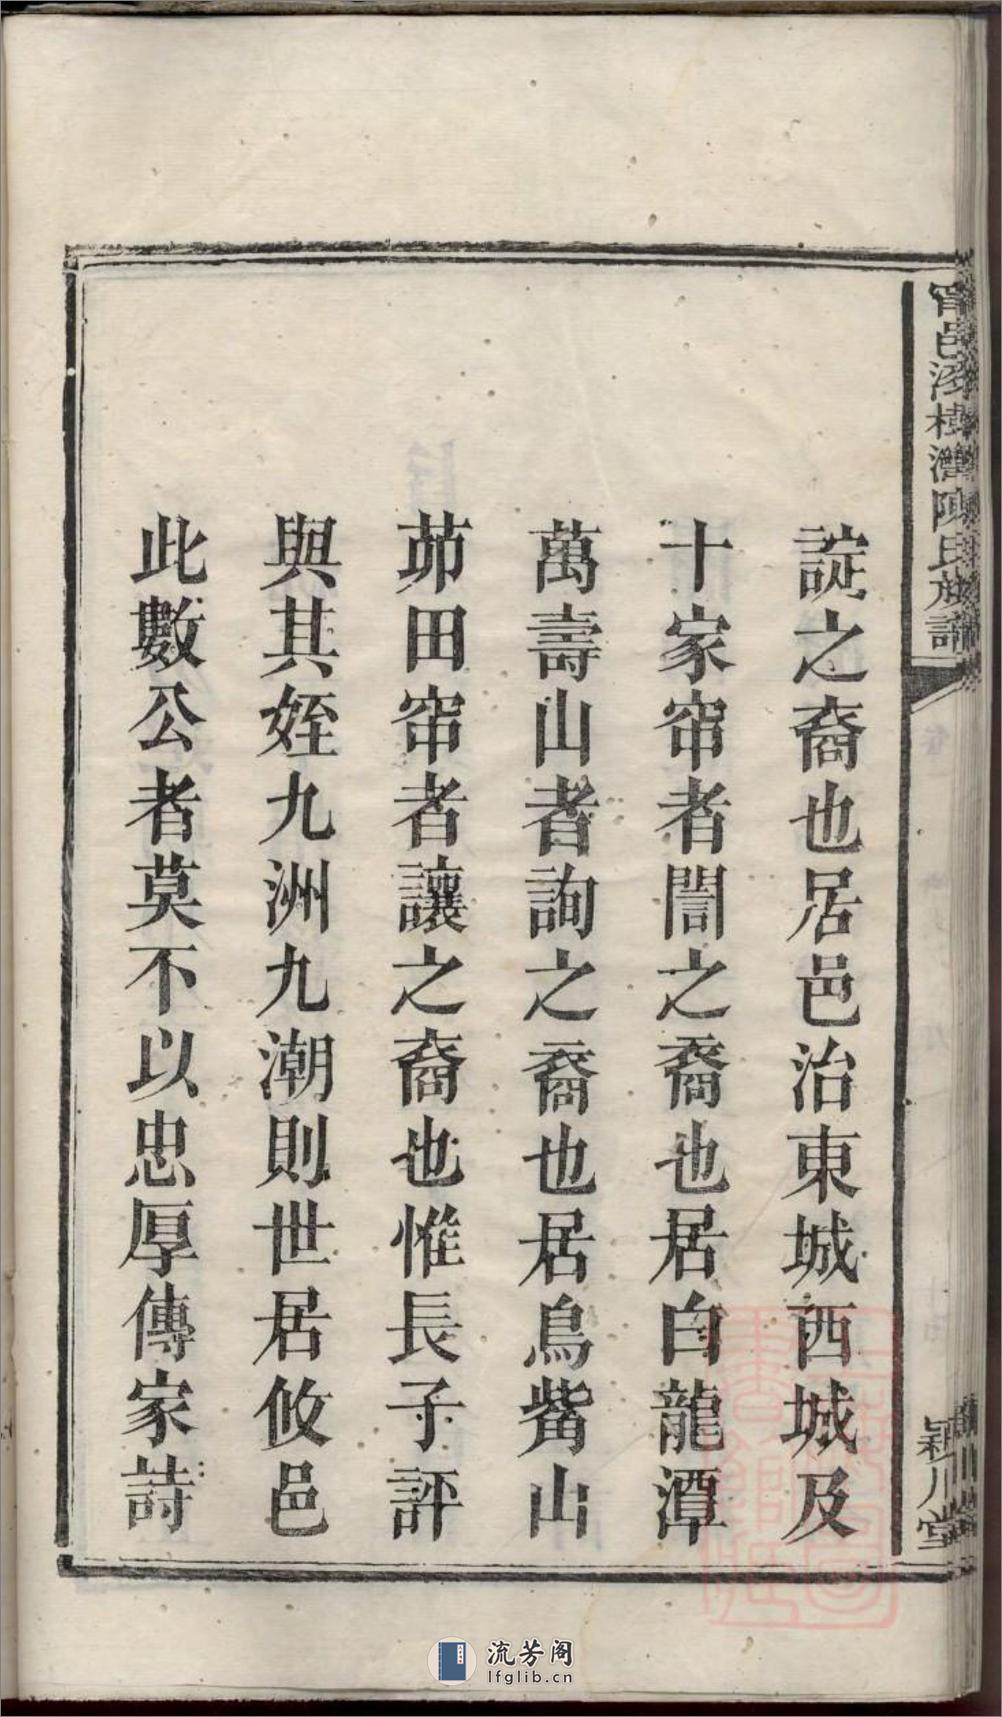 諚之裔也居邑治東城西城及
十家帘者誾之裔也居白龍潭
萬壽山者詢之裔也居鳥觜山
茆田帘者讓之裔也惟長子評
與其姪九洲九潮則世居攸邑
此數公者莫不以忠厚傳家詩
樹灣陳氏族譜
潁川堂
流芳阁
lfglib.cn